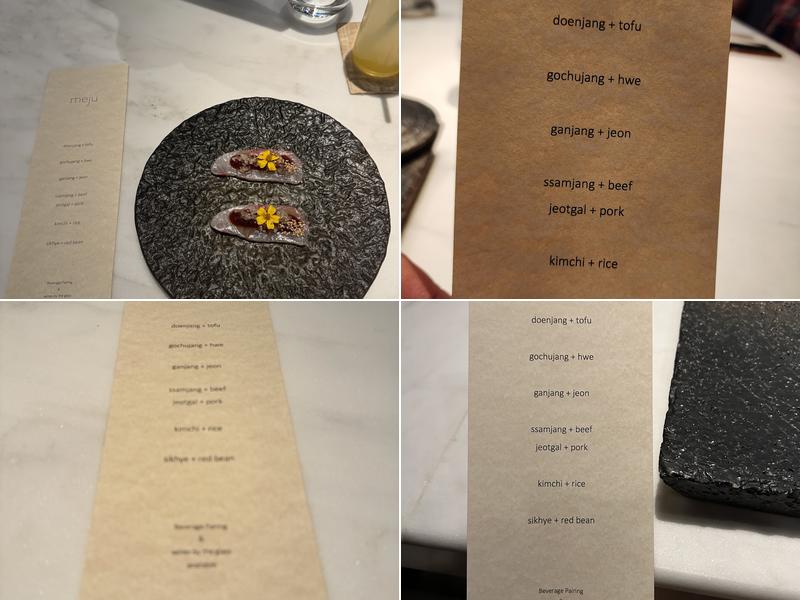 meju
doenjang + tofu
gochujang + hwe
ganjang + jeon
ssamjang + beef
jeotgal + pork
kimchi + rice
sikhye + red bean
Beverage Pairing
&
wines by the glass
doenjang + tofu
gochujang + hwe
ganjang + jeon
ssamjang + beef
jeotgal + pork
kimchi + rice
doenjang + tofu
gochujang + hwe
ganjang + jeon
ssamjang + beef
jeotgal + pork
kimchi + rice
sikhye + red bean
Beverage Pairing
&
wines by the glass
available
doenjang + tofu
gochujang + hwe
ganjang + jeon
ssamjang + beef
jeotgal + pork
kimchi + rice
sikhye + red bean
Beverage Pairing